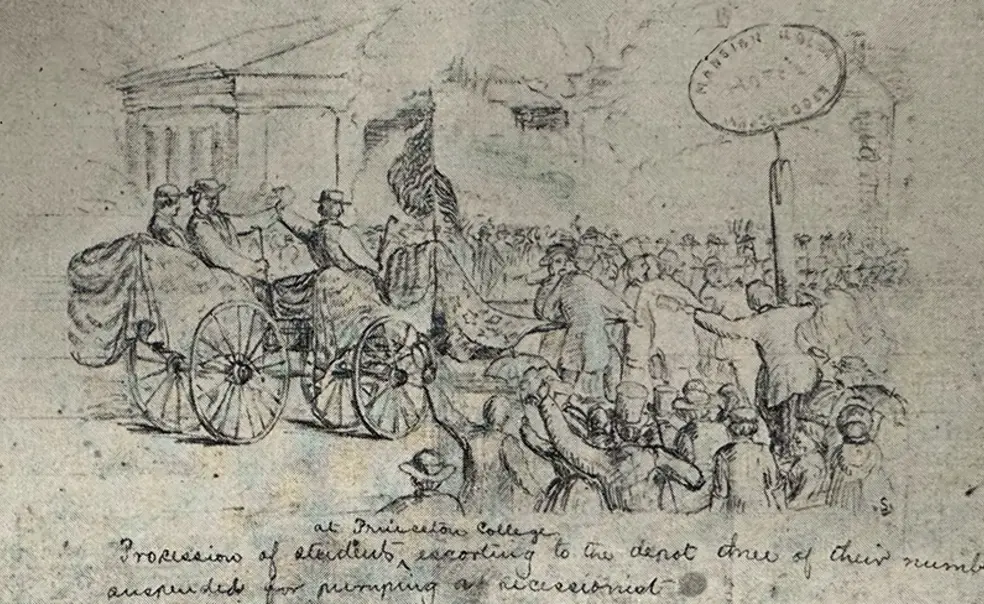 MANSION HOUSE
HOTEL
at Princeton College
Procession of students ‸ escorting to the depot three of their numb
suspended for pumping a secessionist
S